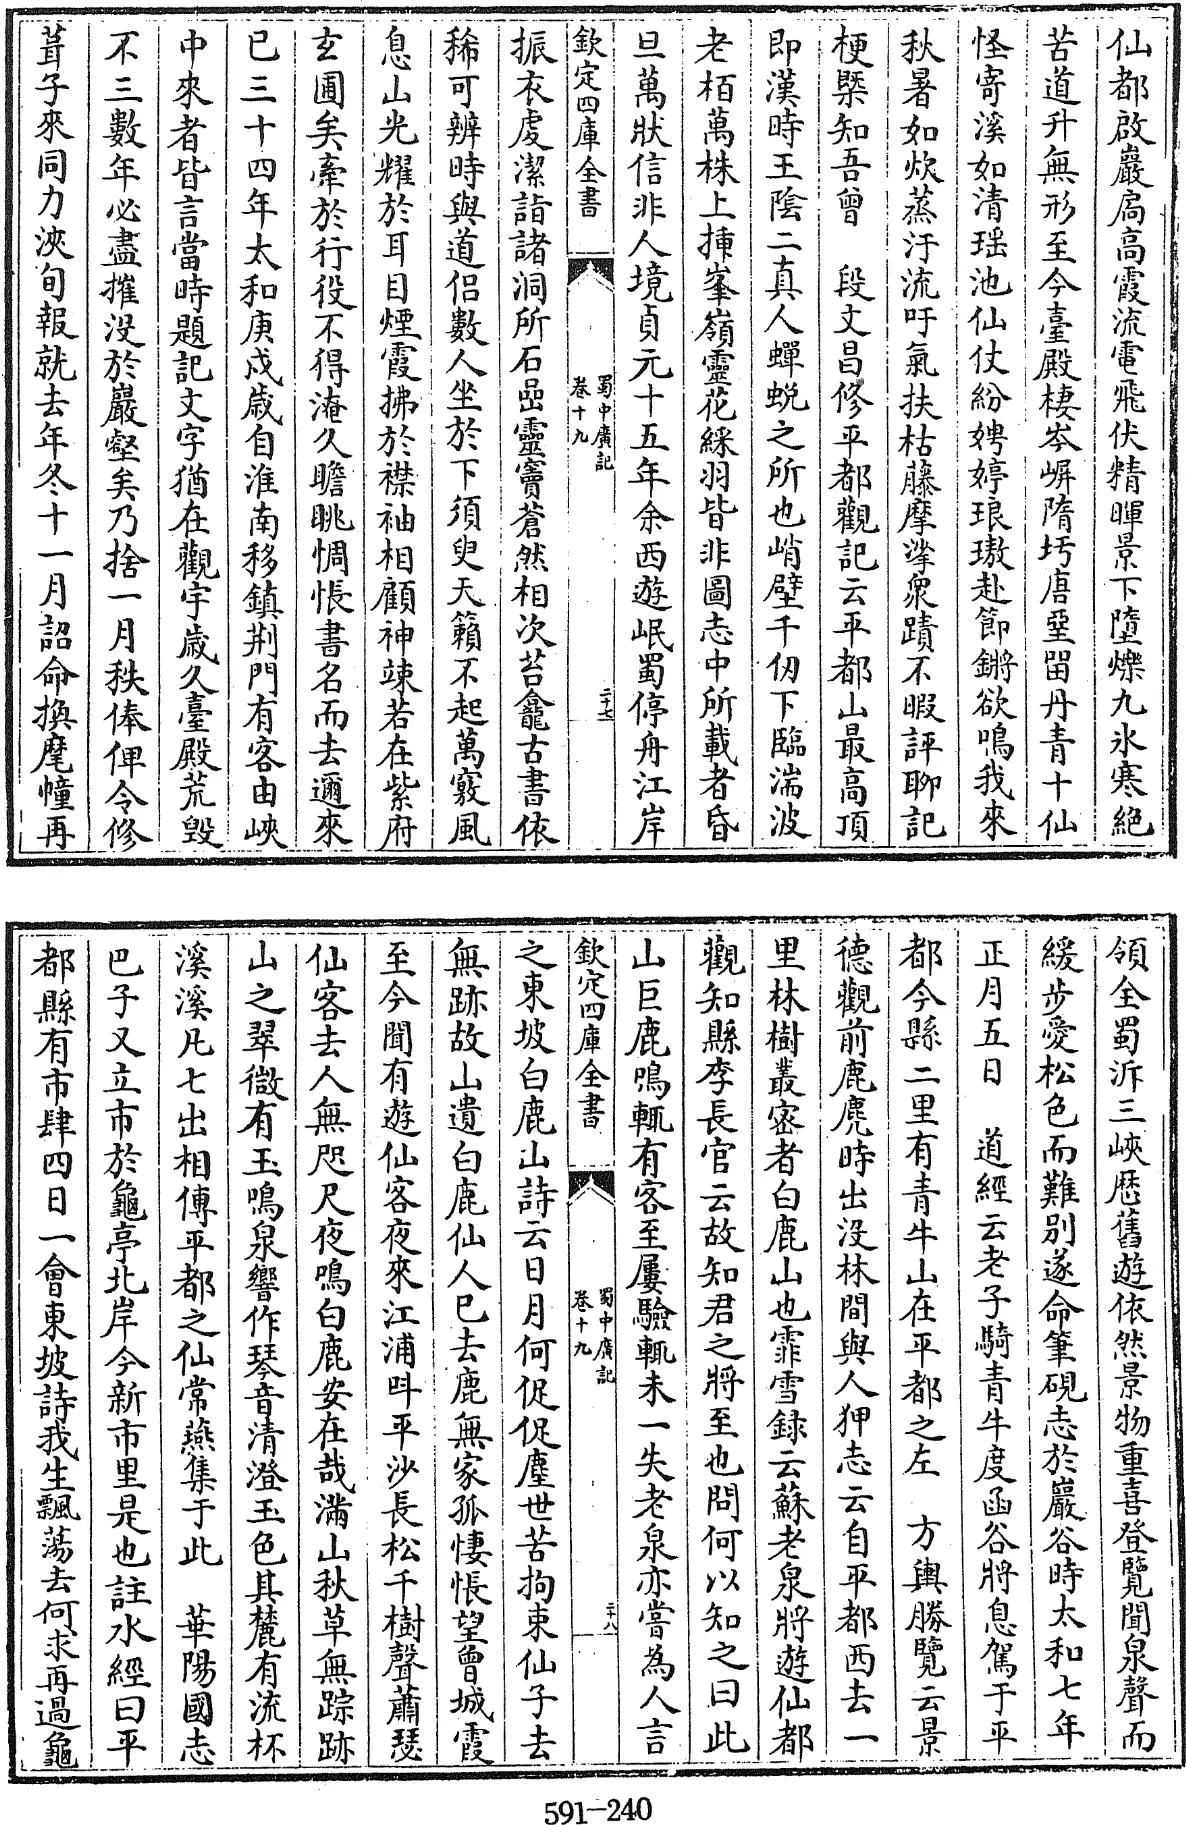 仙都啟巖扃高霞流電飛伏精暉景下墮爍九氷寒絶
苦道升無形至今臺殿棲岑𡾱隋圬唐堊留丹青十仙
怪寄溪如清瑶池仙仗紛娉婷琅璈赴節鏘欲鳴我來
秋暑如炊蒸汗流吁氣扶枯藤摩挲衆蹟不暇評聊記
梗槩知吾曾　段文昌修平都觀記云平都山最高頂
即漢時王陰二真人蟬蛻之所也峭壁千仭下臨湍波
老栢萬株上揷峯嶺靈花綵羽皆非圖志中所載者昏
旦萬狀信非人境貞元十五年余西遊岷蜀停舟江岸
欽定四庫全書
蜀中廣記
卷十九
二十七
振衣虔潔詣諸洞所石嵒靈竇蒼然相次苔龕古書依
稀可辨時與道侣數人坐於下須臾天籟不起萬竅風
息山光耀於耳目煙霞拂於襟袖相顧神竦若在紫府
玄圃矣牽於行役不得淹久瞻眺惆悵書名而去邇來
已三十四年太和庚戍歲自淮南移鎮荆門有客由峽
中來者皆言當時題記文字猶在觀宇歲久臺殿荒毁
不三數年必盡摧没於巖壑矣乃捨一月秩俸俾令修
葺子來同力浹旬報就去年冬十一月詔命換麾幢再
領全蜀泝三峽歴舊遊依然景物重喜登覽聞泉聲而
緩步愛松色而難别遂命筆硯志於巖谷時太和七年
正月五日　道經云老子騎青牛度函谷將息駕于平
都今縣二里有青牛山在平都之左　方輿勝覽云景
德觀前鹿麂時出没林間與人狎志云自平都西去一
里林樹叢宻者白鹿山也霏雪録云蘇老泉將遊仙都
觀知縣李長官云故知君之將至也問何以知之曰此
山巨鹿鳴輒有客至屢驗輒未一失老泉亦嘗為人言
欽定四庫全書
蜀中廣記
卷十九
二十八
之東坡白鹿山詩云日月何促促塵世苦拘束仙子去
無跡故山遺白鹿仙人已去鹿無家孤悽悵望曾城霞
至今聞有遊仙客夜來江浦叫平沙長松千樹聲蕭瑟
仙客去人無咫尺夜鳴白鹿安在哉滿山秋草無踪跡
山之翠微有玉鳴泉響作琴音清澄玉色其麓有流杯
溪溪凡七出相傳平都之仙常燕集于此　華陽國志
巴子又立市於龜亭北岸今新市里是也註水經曰平
都縣有市肆四日一會東坡詩我生飄蕩去何求再過龜
591-240